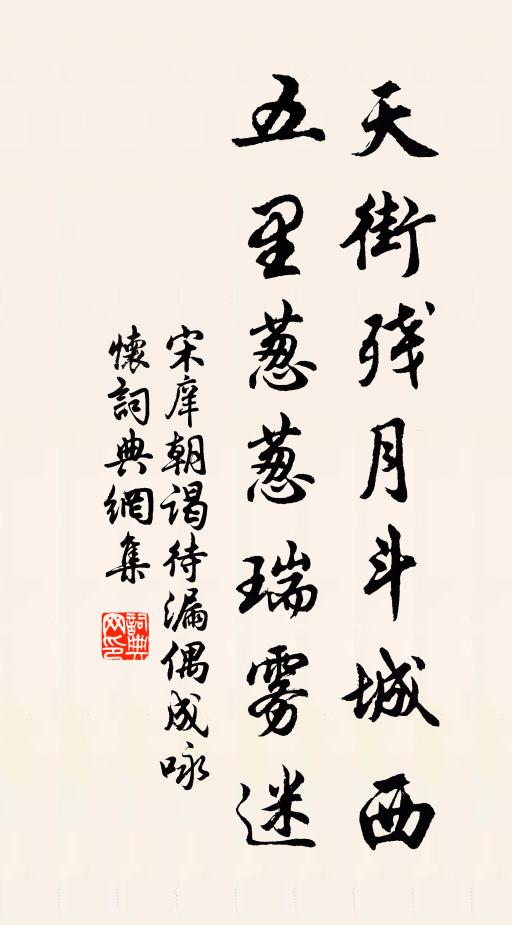 天街残月斗城西
五里葱葱瑞雾迷
宋庠朝谒待漏偶成咏
懷詞典網集
詞典
网印